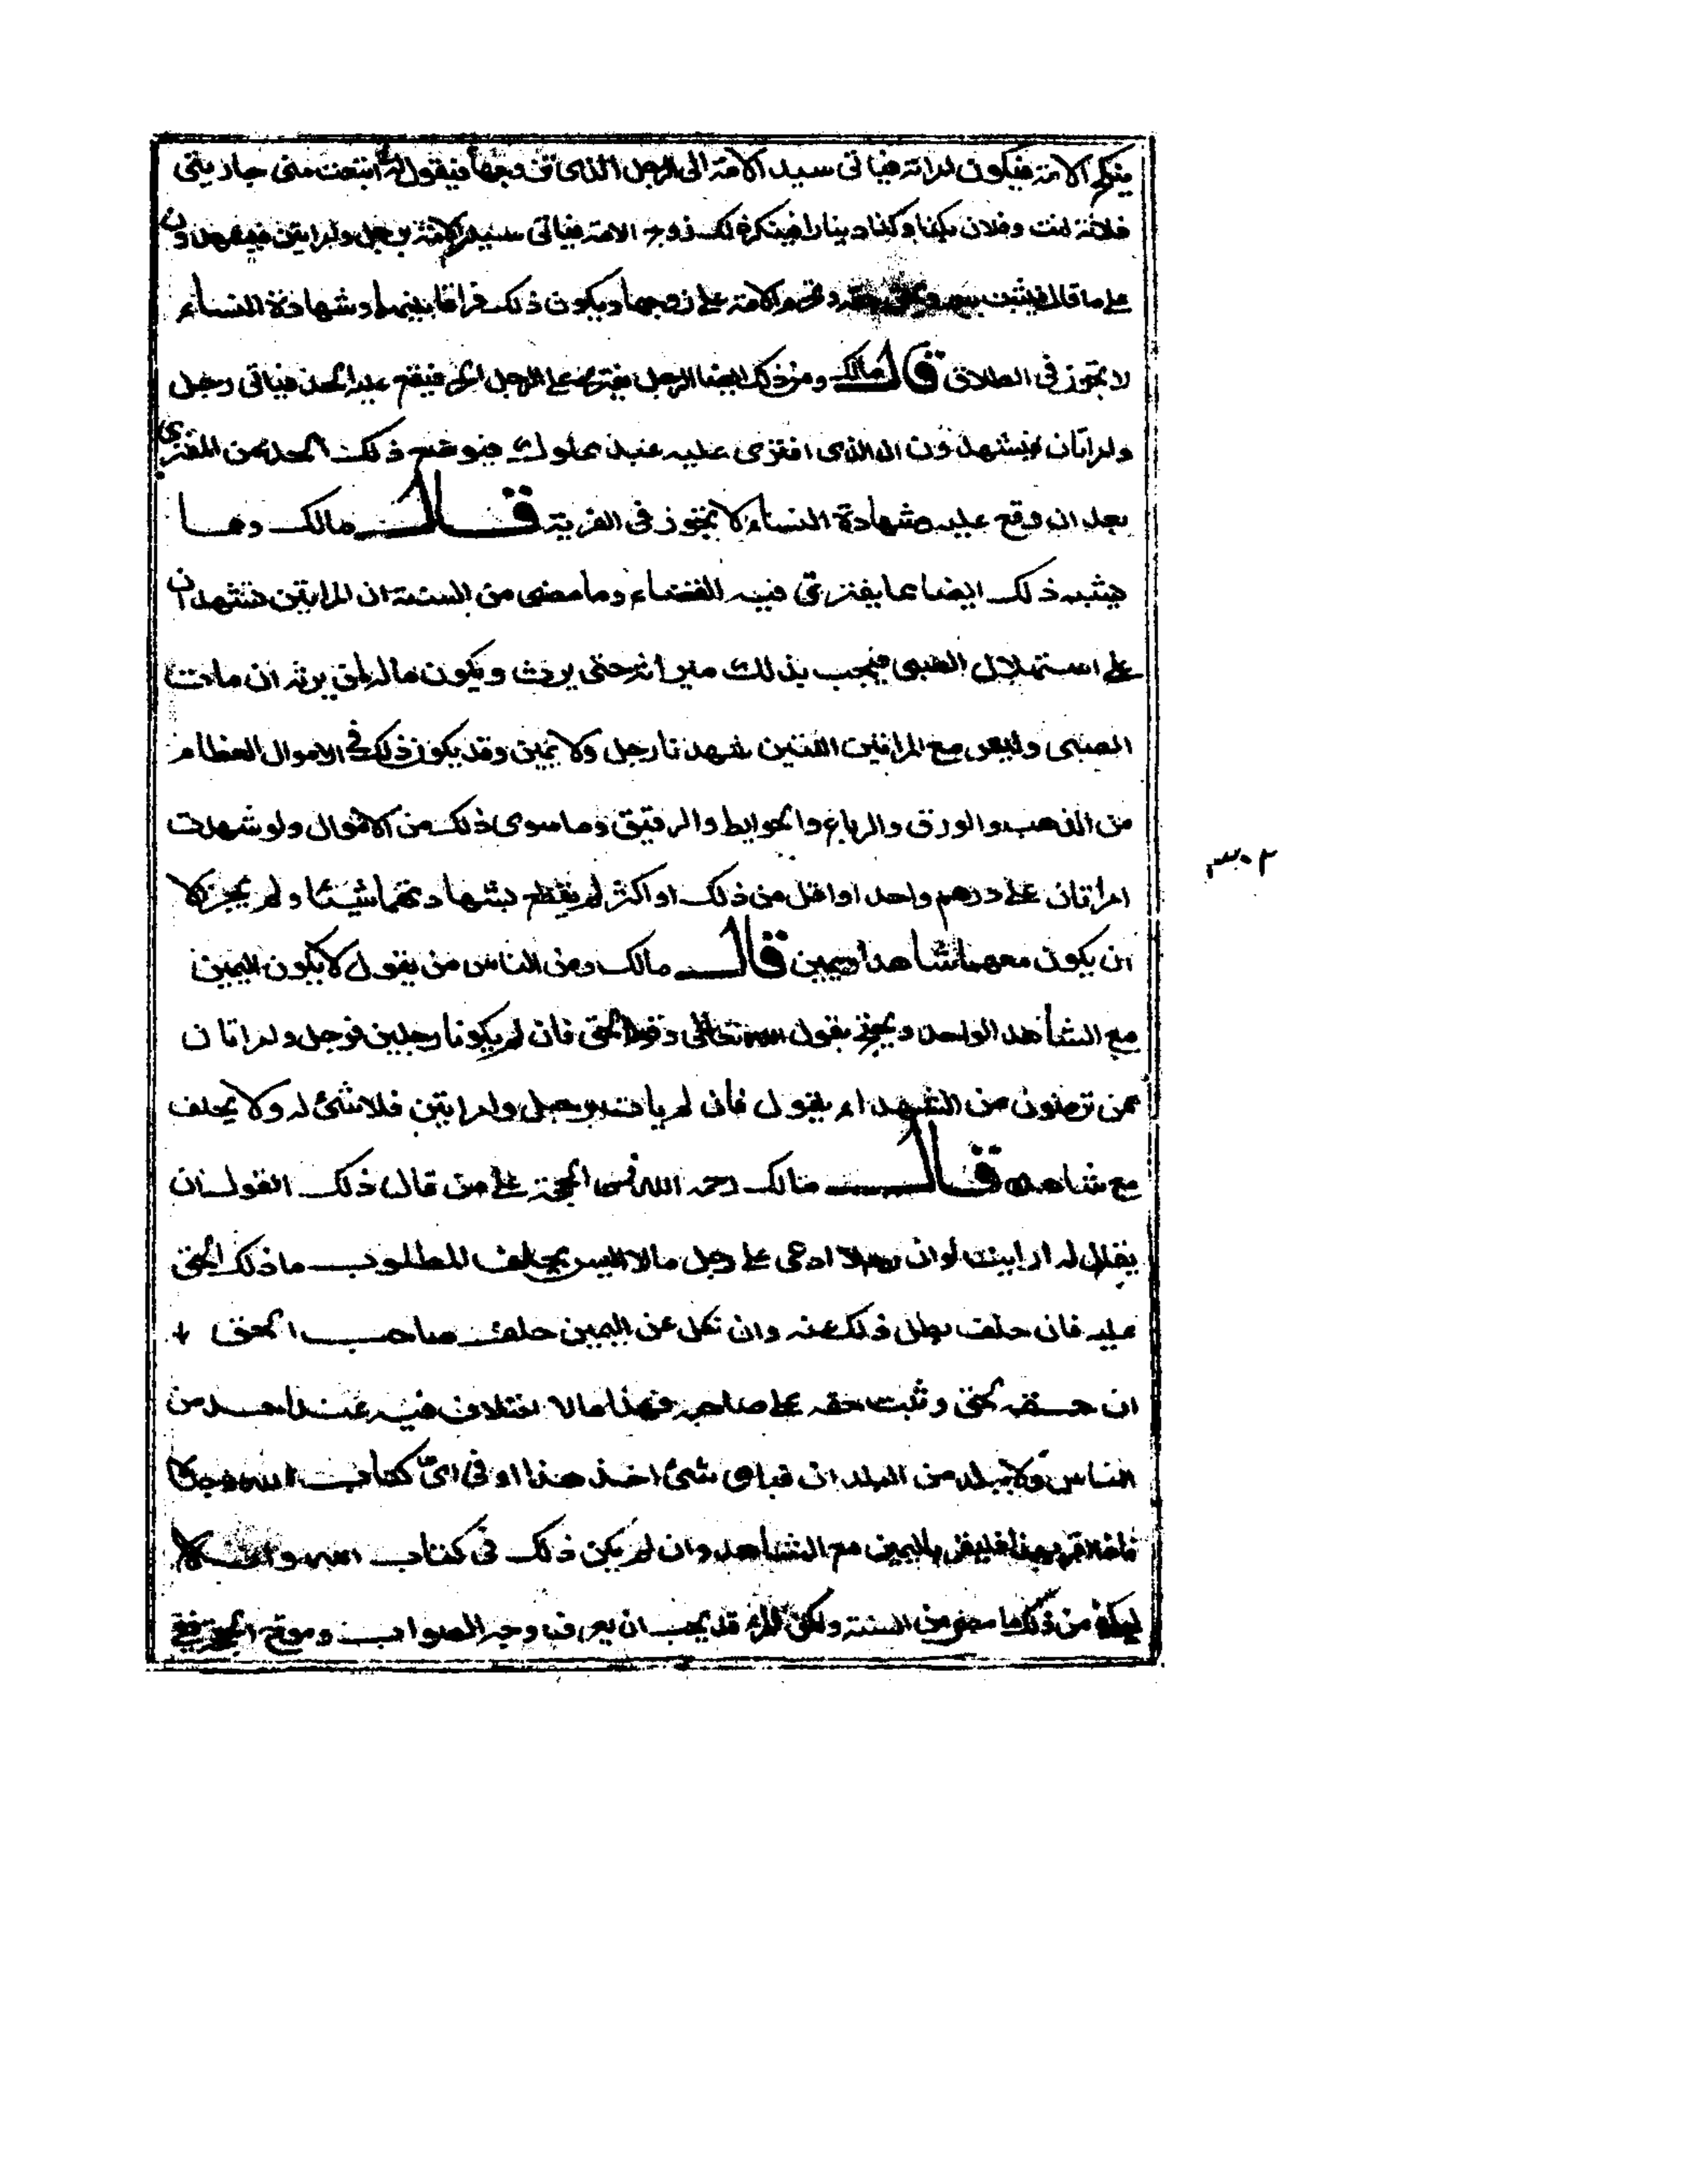 ينكح الامة فيكون امراته فياتى سيد الامة الى الرجل الذى تزوجها فيقول له ابتعت منى جاريتى
فلانة انت وفلان بكذا وكذا دينارا فينكر ذلك زوج الامة فياتى سيد الامة برجل وامرايتن فيشهدون
على ما قال فيثبت بيعه ويحق حقه وتحرم الامة على زوجها ويكون ذلك فراقا بينهما وشهادة النساء
لا تجوز فى الطلاق قال مالك ومن ذلك ايضا الرجل يفترى على الرجل الحر فيقع عليه الحد فياتى رجل
وامراتان فيشهدون ان الذى افترى عليه عبد مملوك فيوضع ذلك الحد عن المفترى
بعد ان وقع عليه وشهادة النساء لا تجوز فى الفرية قال مالك ومما
يشبه ذلك ايضا مما يفترق فيه القضاء وما مضى من السنة ان المرايتن تشهدان
على استهلال الصبى فيجب بذلك ميراثه حتى يرث ويكون ماله لمن يرثه ان مات
الصبى وليس مع المراتين اللتين شهدتا رجل ولا يمين وقد يكون ذلك فى الاموال العظام
من الذهب والورق والرباع والحوايط والرقيق وما سوى ذلك من الاموال ولو شهدت
امراتان على درهم واحد او اقل من ذلك او اكثر لم يقطع بشهادتهما شيئا ولم يجز الا
ان يكون معهما شاهد او يمين قال مالك ومن الناس من يقول لا يكون اليمين
مع الشاهد الواحد ويحتج بقول الله تعالى وقوله الحق فان لم يكونا رجلين فرجل وامراتان
ممن ترضون من الشهداء يقول فان لم يات برجل وامرايتن فلا شئ له ولا يحلف
مع شاهده قال مالك رحمه الله فمن الحجة على من قال ذلك القول ان
يقال له ارايت لو ان رجلا ادعى على رجل مالا اليس يحلف المطلوب ما ذلك الحق
عليه فان حلف بطل ذلك عنه وان نكل عن اليمين حلف صاحب الحق
ان حقه لحق وثبت حقه على صاحبه فهذا ما لا اختلاف فيه عند احد من
الناس ولا ببلد من البلدان فباى شئ اخذ هذا او فى اى كتاب الله وجده
فاذا اقر بهذا فليقر باليمين مع الشاهد وان لم يكن ذلك فى كتاب الله وانه
ليكفى من ذلك ما مضى من السنة ولكن المرء قد يحب ان يعرف وجه الصواب وموقع الحجة ففى
٣٠٢